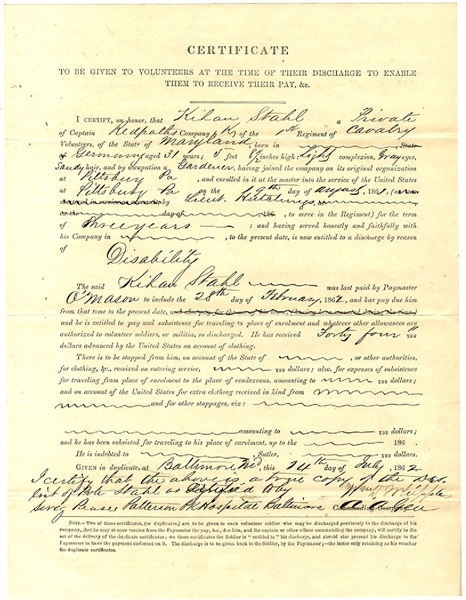 CERTIFICATE
TO BE GIVEN TO VOLUNTEERS AT THE TIME OF THEIR DISCHARGE TO ENABLE
THEM TO RECEIVE THEIR PAY, &c.
I CERTIFY, on honor, that Kihan Stahl a Private
of Captain Redpaths Company (K) of the 1st Regiment of Cavalry
Volunteers, of the State of Maryland born in State
of Germany aged 31 years; 5 feet 8½ inches high; Light complexion, Gray eyes,
Sandy hair, and by occupation a Gardener, having joined the company on its original organization
at Pittsburg Pa, and enrolled in it at the muster into the service of the United States
at Pittsburg Pa on the 9th day of August, 1861,
by Lieut.
day of 186, to serve in the Regiment) for the term
of Three years : and having served honestly and faithfully with
his Company in , to the present date, is now entitled to a discharge by reason
of Disability
The said Kihan Stahl was last paid by Paymaster
O'Mason to include the 28th day of February, 1862, and has pay due him
from that time to the present date,
and he is entitled to pay and subsistence for traveling to place of enrolment and whatever other allowances are
authorized to volunteer soldiers, or militia, so discharged. He has received Forty four
dollars advanced by the United States on account of clothing.
There is to be stopped from him, on account of the State of , or other authorities,
for clothing, &c., received on entering service, dollars; also, for expenses of subsistence
for traveling from place of enrolment to the place of rendezvous, amounting to dollars;
and on account of the United States for extra clothing received in kind from
and for other stoppages, viz:
amounting to dollars;
and he has been subsisted for traveling to his place of enrolment, up to the 186.
He is indebted to , Sutler, dollars.
GIVEN in duplicate, at Baltimore Md, this 24th day of July, 1862
I certify that the above is a true copy of the
of Stahl as
Patterson Pk Hospital Baltimore
NOTE.—Two of these certificates, (or duplicates,) are to be given to each volunteer soldier who may be discharged previously to the discharge of his
company, that he may at once receive from the Paymaster the pay, &c., due him, and the captain or other officer commanding the company, will certify
to the act of the delivery of the duplicate certificates; on these certificates the Soldier is "entitled to" his discharge, and should also present his discharge to the
Paymaster to have the payment endorsed on it. The discharge is to be given back to the Soldier, by the Paymaster;—the latter only retaining as his voucher
the duplicate certificates.